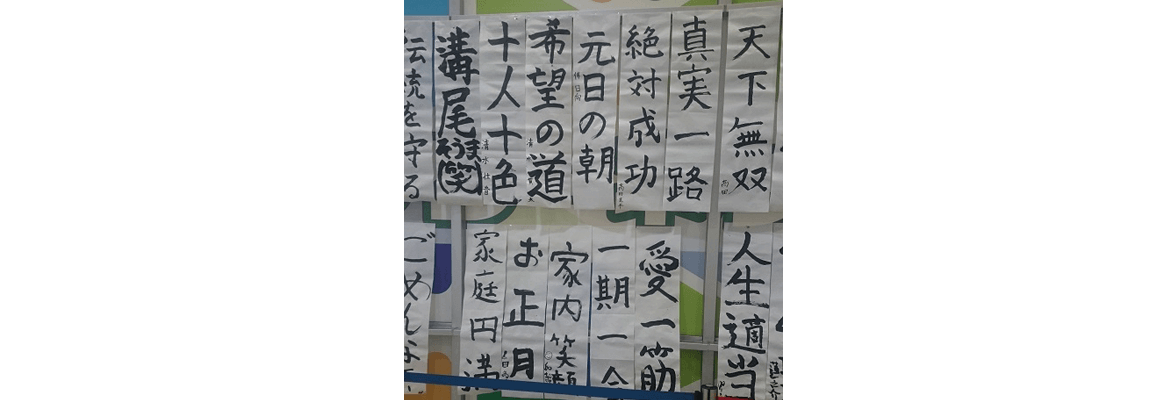 天下無双
真実一路
絶対成功
元日の朝
希望の道
十人十色
溝尾そうま(笑)
伝統を守る
人生適当
愛一筋
一期一会
家内笑顔
お正月
家庭円満
ごめんな